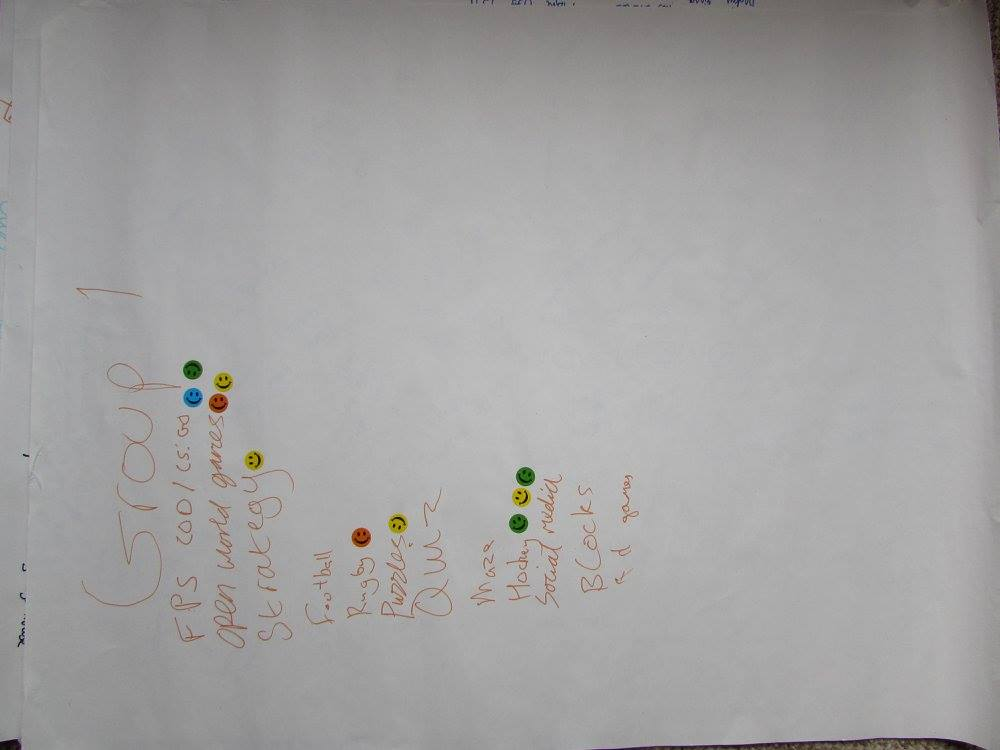 Group 1
FPS COD / CS:GO
open world games
Strategy
Football
Rugby
Puzzles
Quiz
Maze
Hockey
Social media
Blocks
games